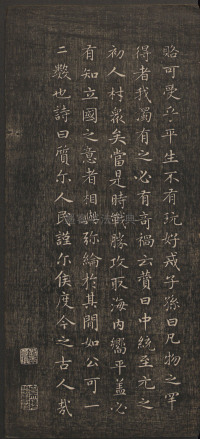 略可受無平生不有玩好戒子孫曰凡物之罕
得者我苟有之必有奇禍六贊曰中統至元之
初人材眾矣當是時戰勝攻取海內嚮平盖必
有知立國之意者相與弥綸於其間如公可一
二數也詩曰質尔人民謹尔侯度今之古人哉